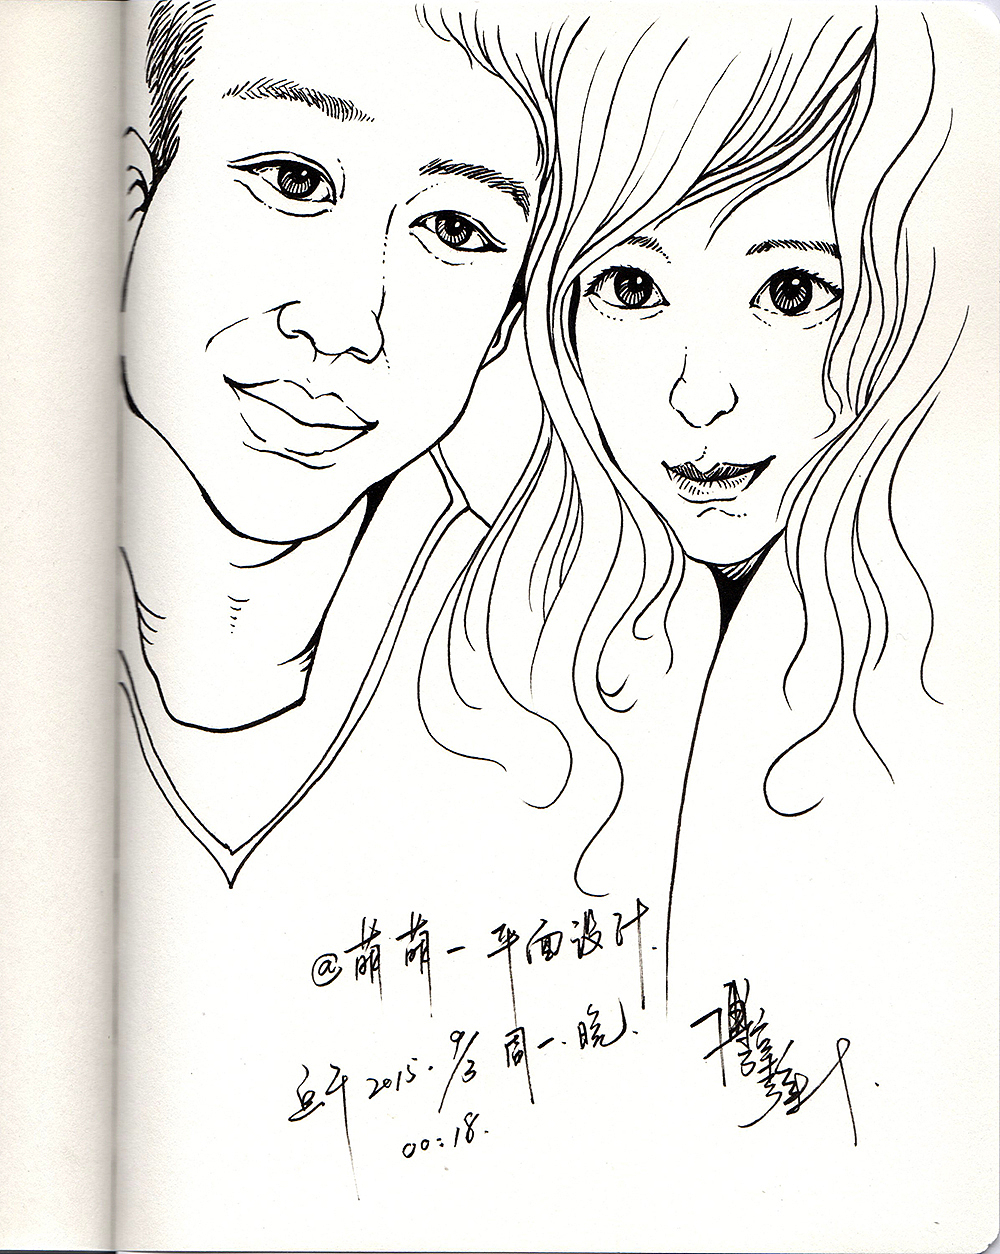 @萌萌-平面设计.
豆干 2015. 9/3 周一.晚.
00:18.